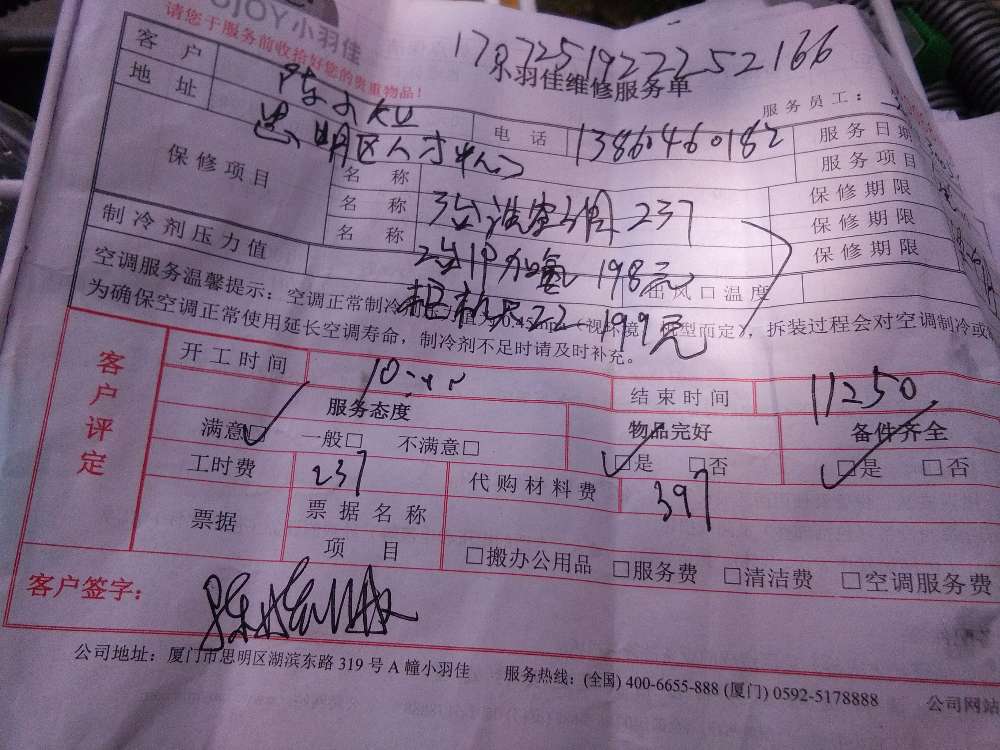 OJOY小羽佳
请您于服务前收拾好您的贵重物品！
17072519222252166
羽佳维修服务单
服务员工：
客户
电话 13860460182 服务日期
地址 思明区人才中心
服务项目
保修项目
名称 保修期限
名称 3台洗室内 237 保修期限
名称 2台1P加氟 198元 保修期限
制冷剂压力值 出风口温度
柜机 199元
空调服务温馨提示：空调正常制冷 值为0.45mpa（视环境 机型而定），拆装过程会对空调制冷或
为确保空调正常使用延长空调寿命，制冷剂不足时请及时补充。
客户评定
开工时间 结束时间 11250
服务态度 物品完好 备件齐全
满意□ 一般□ 不满意□ □是 □否 □是 □否
工时费 237 代购材料费 397
票据 票据名称
项目 □搬办公用品 □服务费 □清洁费 □空调服务费
客户签字：
公司地址：厦门市思明区湖滨东路319号A幢小羽佳 服务热线：(全国) 400-6655-888 (厦门) 0592-5178888 公司网站